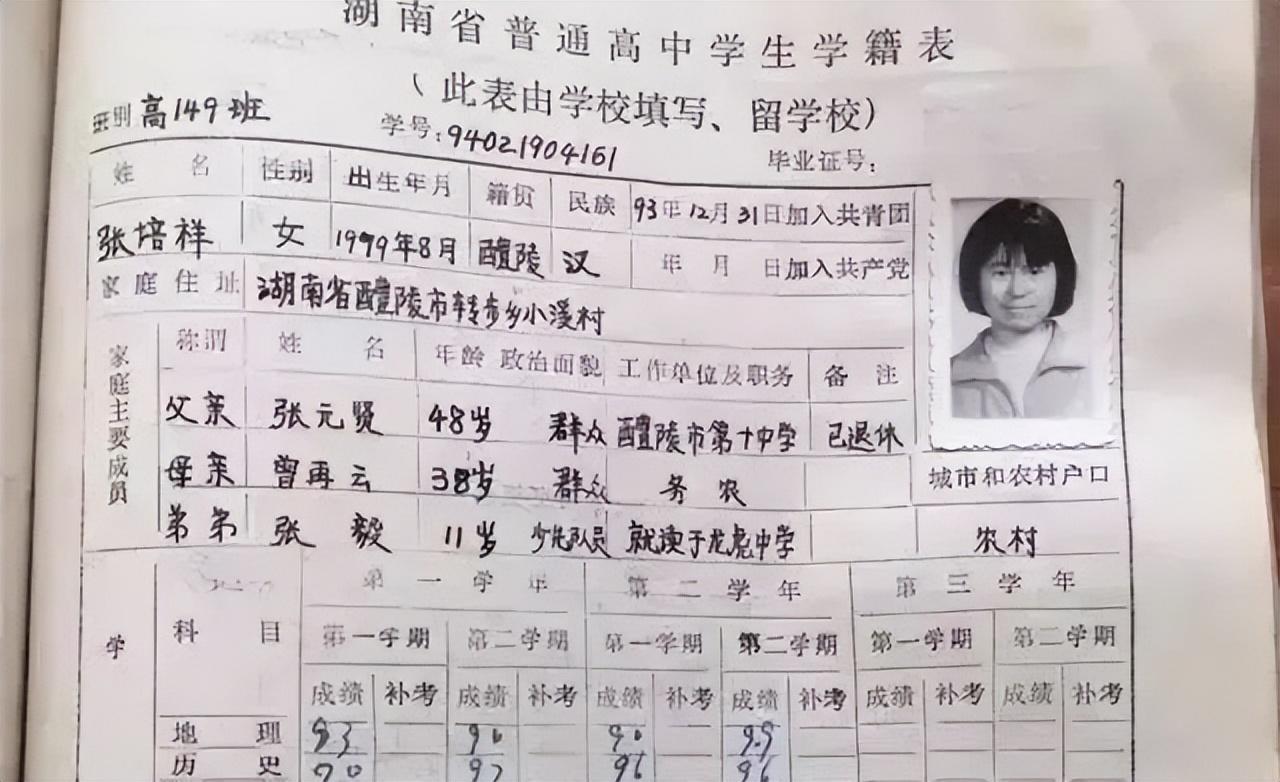 湖南省普通高中学生学籍表
（此表由学校填写、留学校）
班别 高149班 学号：94021904161 毕业证号：
姓名 性别 出生年月 籍贯 民族 93年12月31日加入共青团
张培祥 女 1979年8月 醴陵 汉 年 月 日加入共产党
家庭住址 湖南省醴陵市转步乡小溪村
家庭主要成员 称谓 姓名 年龄 政治面貌 工作单位及职务 备注
父亲 张元贤 48岁 群众 醴陵市第十中学 已退休
母亲 曾再云 38岁 群众 务农 城市和农村户口
弟弟 张毅 11岁 少先队员 就读于龙虎中学 农村
第一学年 第二学年 第三学年
学 科目 第一学期 第二学期 第一学期 第二学期 第一学期 第二学期
成绩 补考 成绩 补考 成绩 补考 成绩 补考 成绩 补考 成绩 补考
地理 90 90
历史 96 96